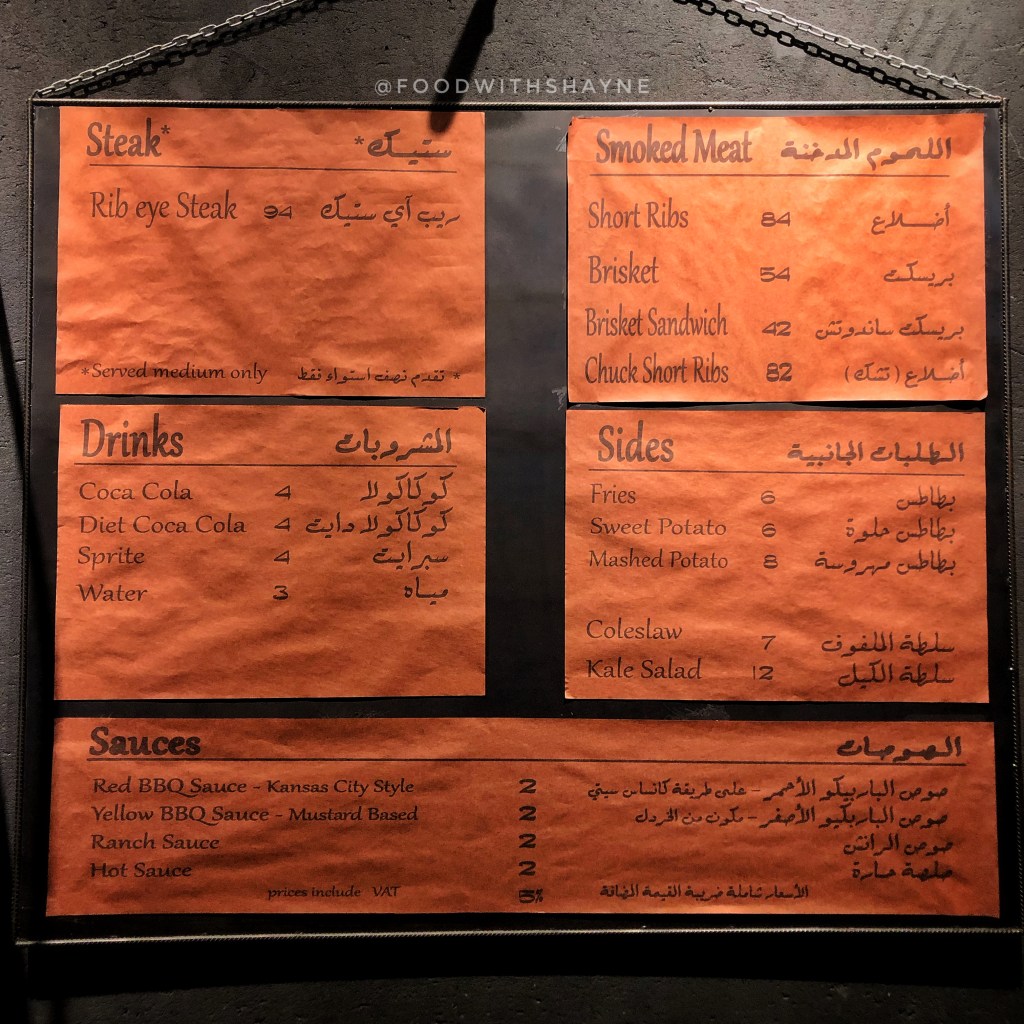 @FOODWITHSHAYNE
Steak* ستيك*
Rib eye Steak 94 ريب آي ستيك
*Served medium only * تقدم نصف استواء فقط
Smoked Meat اللحوم المدخنة
Short Ribs 84 أضلاع
Brisket 54 بريسكت
Brisket Sandwich 42 بريسكت ساندوتش
Chuck Short Ribs 82 أضلاع (تشك)
Drinks المشروبات
Coca Cola 4 كوكاكولا
Diet Coca Cola 4 كوكاكولا دايت
Sprite 4 سبرايت
Water 3 مياه
Sides الطلبات الجانبية
Fries 6 بطاطس
Sweet Potato 6 بطاطس حلوة
Mashed Potato 8 بطاطس مهروسة
Coleslaw 7 سلطة الملفوف
Kale Salad 12 سلطة الكيل
Sauces الصوصات
Red BBQ Sauce - Kansas City Style 2 صوص الباربيكو الأحمر - على طريقة كانساس سيتي
Yellow BBQ Sauce - Mustard Based 2 صوص الباربكيو الأصفر - مكون من الخردل
Ranch Sauce 2 صوص الرانش
Hot Sauce 2 صلصة حارة
prices include VAT 5% الأسعار شاملة ضريبة القيمة المضافة